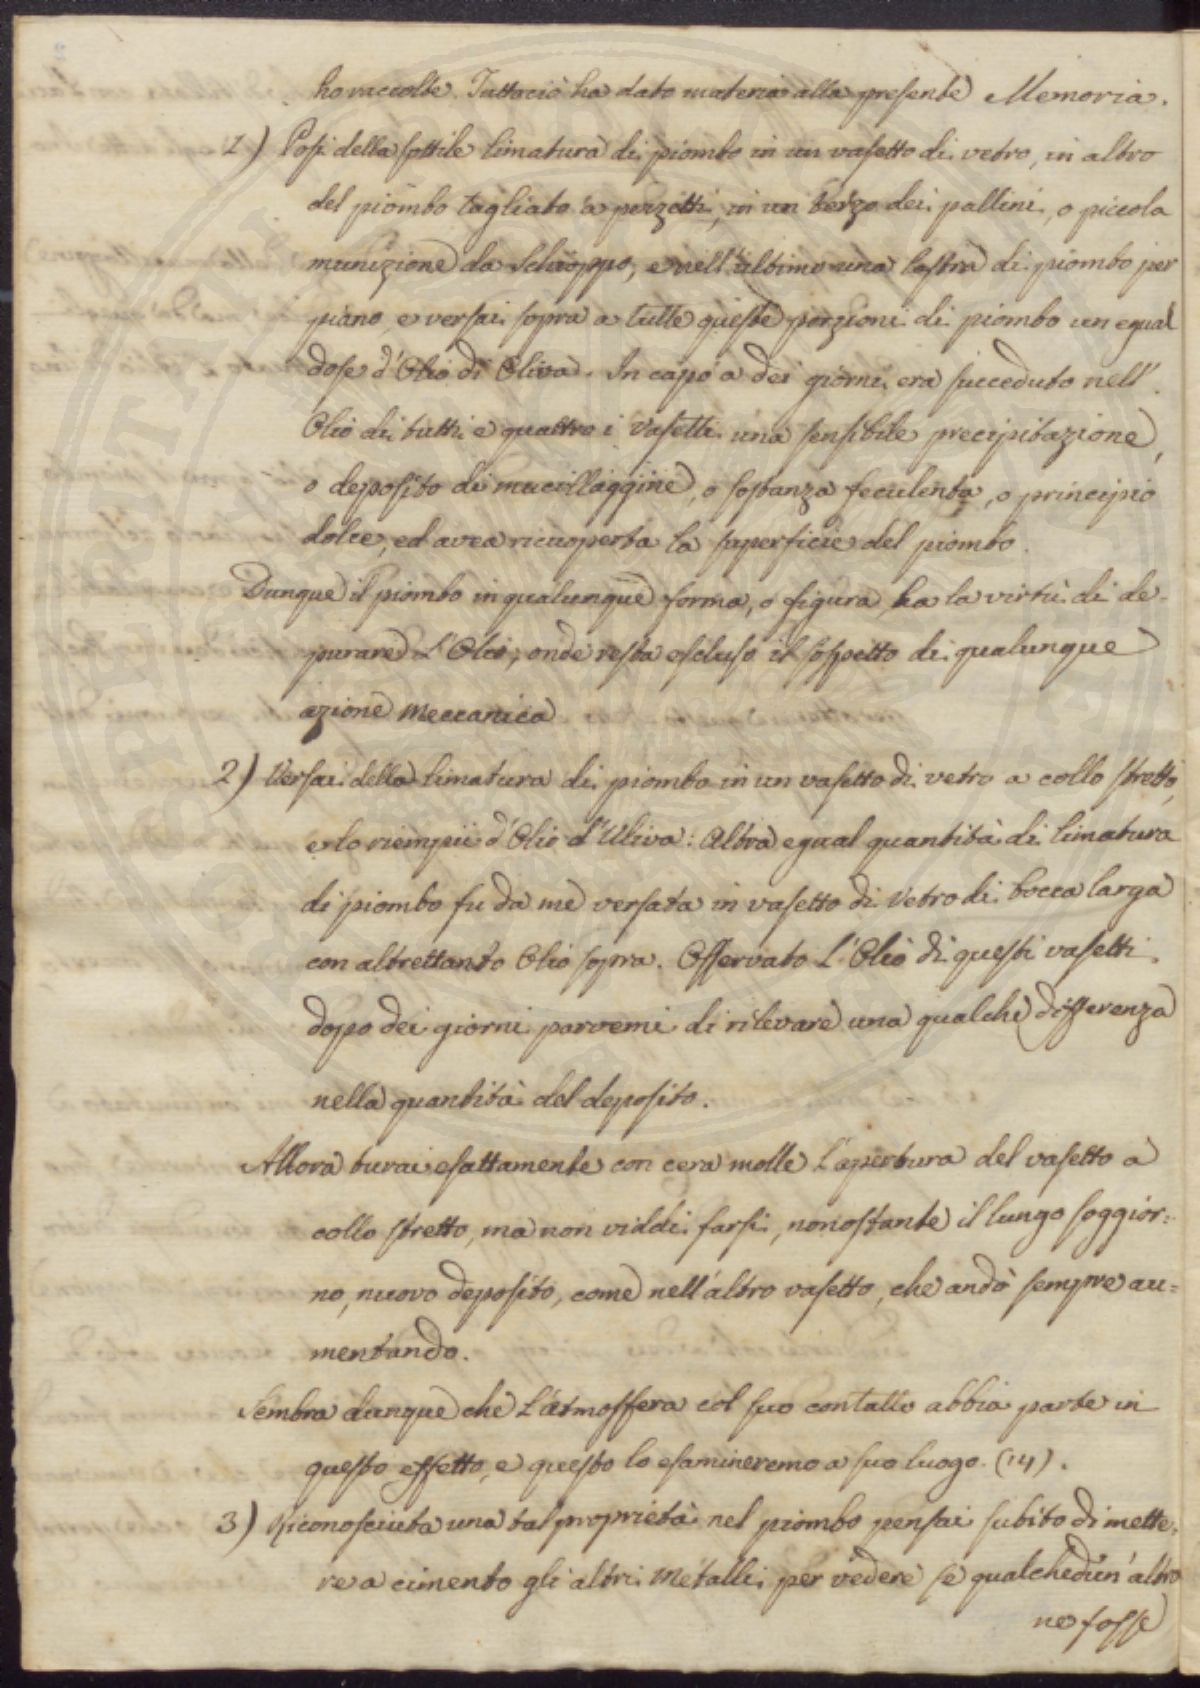 ho raccolte. Tuttociò ha dato materia alla presente Memoria.
1) Posi della sottile limatura di piombo in un vasetto di vetro, in altro
del piombo tagliato a pezzetti, in un terzo dei pallini, o piccola
munizione da Schioppo, e nell'ultimo una lastra di piombo per
piano, e versai sopra a tutte queste porzioni di piombo un egual
dose d'Olio di Oliva. In capo a dei giorni era succeduto nell'
Olio di tutti e quattro i vasetti una sensibile precipitazione,
o deposito di mucillaggine, o sostanza feculenta, o principio
dolce, ed avea ricuoperta la superficie del piombo.
Dunque il piombo in qualunque forma, o figura ha la virtù di de-
purare L'Olio; onde resta escluso il sospetto di qualunque
azione Meccanica
2) Versai della limatura di piombo in un vasetto di vetro a collo stretto,
e lo riempii d'Olio d'Uliva: Altra egual quantità di limatura
di piombo fu da me versata in vasetto di Vetro di bocca larga
con altrettanto Olio sopra. Osservato L'Olio di questi vasetti
dopo dei giorni parvemi di rilevare una qualche differenza
nella quantità del deposito.
Allora turai esattamente con cera molle L'apertura del vasetto a
collo stretto, ma non viddi farsi, nonostante il lungo soggior=
no, nuovo deposito, come nell'altro vasetto, che andò sempre au=
mentando.
Sembra dunque che L'Atmosfera col suo contatto abbia parte in
questo effetto, e questo lo esamineremo a suo luogo. (14).
3) Riconosciuta una tal proprietà nel piombo pensai subito di mette=
re a cimento gli altri Metalli per vedere se qualchedun'altro
ne fosse